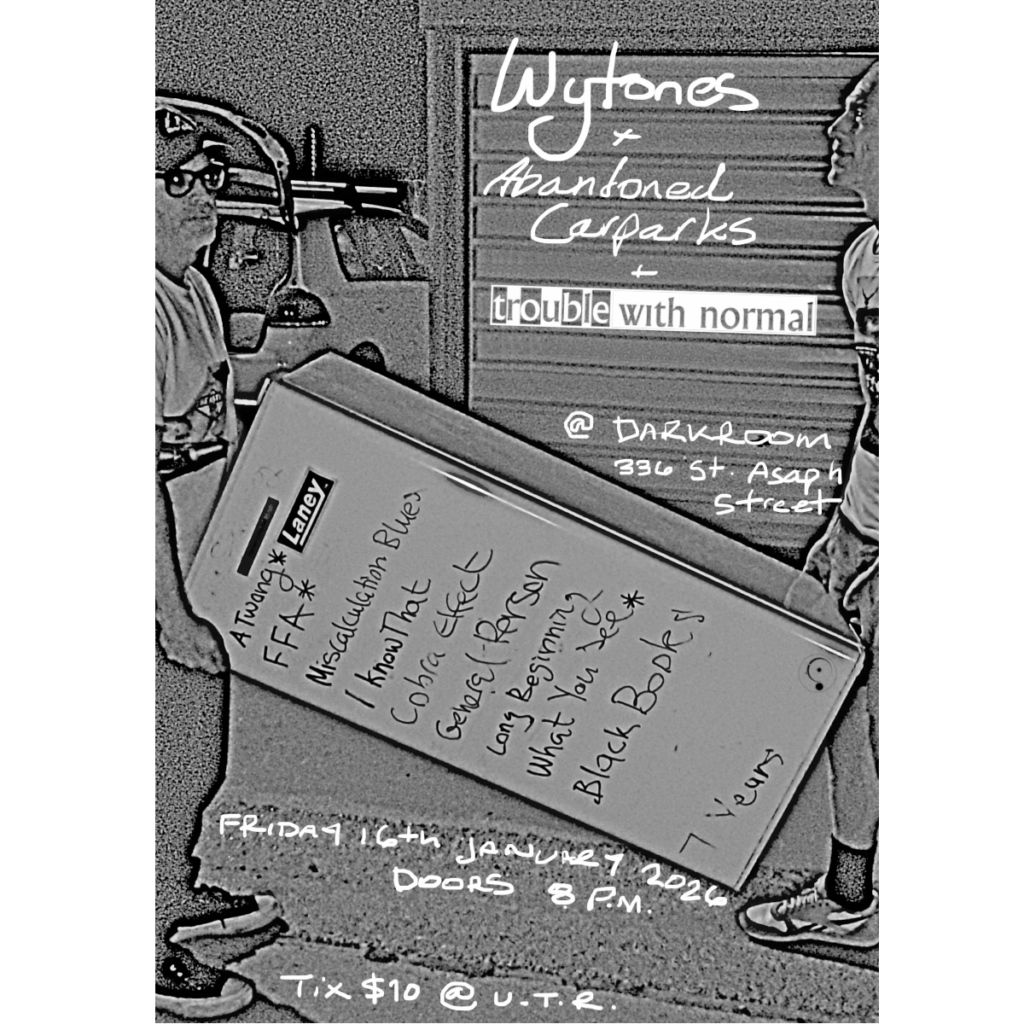 Wytones
+
Abandoned
Carparks
+
trouble with normal
@ DARKROOM
336 St. Asaph
Street
Laney
A Twang*
FFA*
Miscalculation Blues
I Know That
Cobra Effect
General Person
Long Beginning
What You See*
Black Books
7 Years
FRIDAY 16th JANUARY 2026
DOORS 8 P.M.
Tix $10 @ U.T.R.